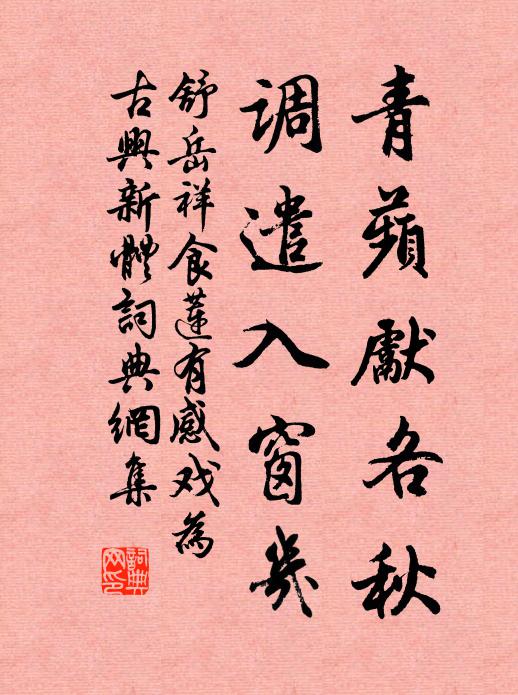 青蘋獻名秋
调遣入窗幾
舒岳祥食蓮有感戏為
古興新體詞典網集
詞典
网印